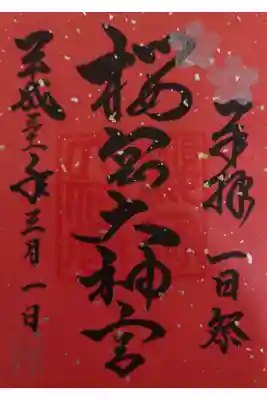 奉拝 一日祭
桜岡大神宮
平成三十一年三月一日